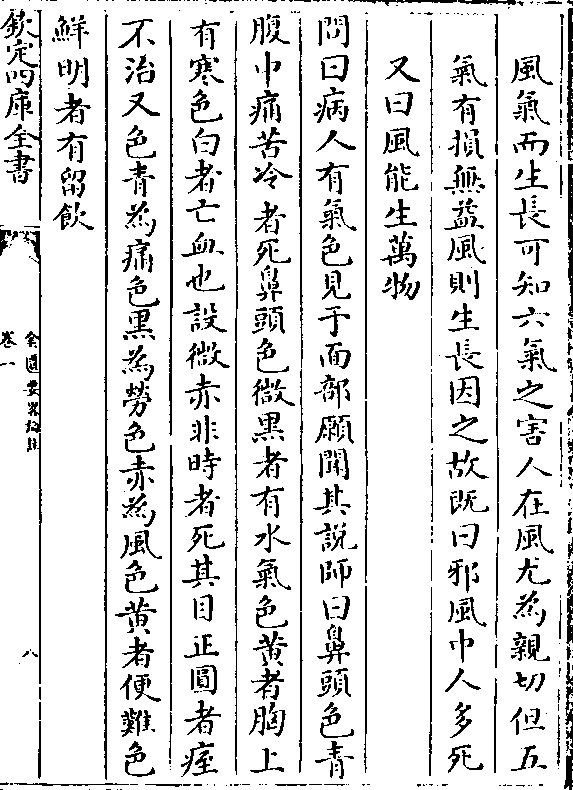 風氣而生長可知六氣之害人在風尤為親切但五
氣有損無益風則生長因之故既曰邪風中人多死
又曰風能生萬物
問曰病人有氣色見于面部願聞其説師曰鼻頭色青
腹中痛苦冷者死鼻頭色微黒者有水氣色黄者胸上
有寒色白者亡血也設微赤非時者死其目正圓者痓
不治又色青為痛色黒為勞色赤為風色黄者便難色
鮮明者有留飲
欽定四庫全書
金匱要畧論註
卷一
八